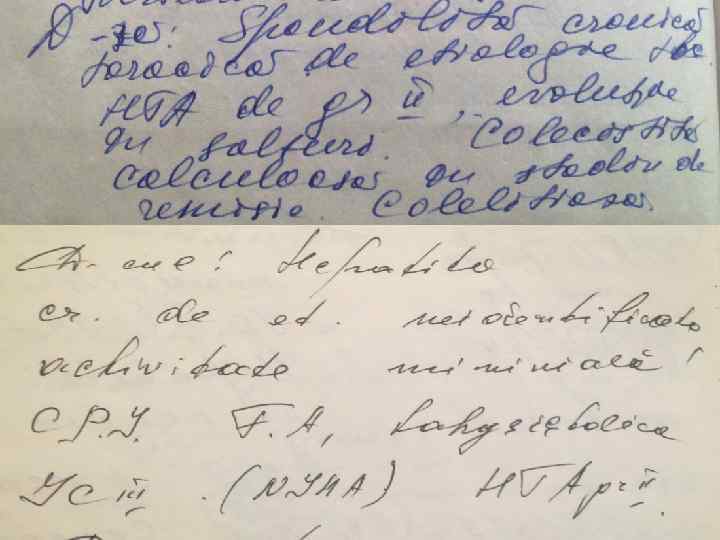 D-za: Spondilită cronică
toracică de etiologie tbc
HTA de gr II, evoluție
în salturi. Colecistită
calculoasă în stadiu de
remisie. Colelitiază.
Hepatită
cr. de et. neidentificată,
activitate minimală!
C.P.I. F.A, tahysistolica
IC III. (NYHA) HTA gr II.